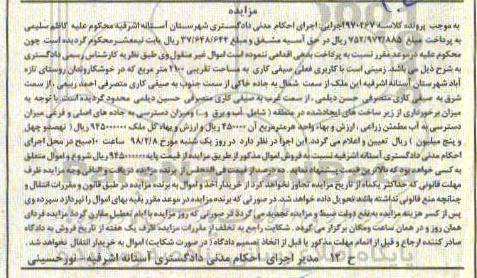 مزایده
به موجب پرونده کلاسه ۹۷۰۲۶۷ اجرایی: اجرای احکام مدنی دادگستری شهرستان آستانه اشرفیه محکوم علیه کاظم سلیمی
به پرداخت مبلغ ۷۵۲/۹۷۲/۸۸۵ ریال در حق آسیه مشفق و مبلغ ۳۷/۶۴۸/۶۴۴ ریال بابت نیمعشر محکوم گردیده است چون
محکوم علیه در موعد مقرر نسبت به پرداخت بدهی اقدامی ننموده است اموال غیر منقول وی طبق نظریه کارشناس رسمی دادگستری
به شرح ذیل می باشد. زمینی است با کاربری فعلی صیفی کاری به مساحت تقریبی ۲۱۰۰ متر مربع که در خوشکاروندان روستای تازه
آباد شهرستان آستانه اشرفیه این ملک از سمت شمال به جاده خاکی از سمت جنوب به صیفی کاری متصرفی احمد ربیعی، از سمت
شرق به صیفی کاری متصرفی حسن دیلمی، از سمت غرب به صیفی کاری متصرفی حسین دیلمی محدود گردیده است. با توجه به
میزان برخورداری از زیر ساخت های ایجادشده در منطقه (شامل آب و برق و...) ومیزان دسترسی به جاده های اصلی و فرعی میزان
دسترسی به آب مطمئن زراعی، ارزش و بهاء واحد هر مترمربع آن ۴۵۰۰۰۰ ریال و ارزش و بهاء کل ملک ۹۴۵۰۰۰۰۰۰ (نهصد و چهل
و پنج میلیون) ریال تعیین و اعلام می گردد. این اجرا در نظر دارد در روز یک شنبه مورخ ۹۸/۲/۸ ساعت ۱۰صبح در محل اجرای
احکام مدنی دادگستری آستانه اشرفیه نسبت به فروش اموال مذکور از طریق مزایده از قیمت پایه ۹۴۵۰۰۰۰۰۰ ریال شروع و اموال متعلق
به کسی خواهد بود که بالاترین قیمت را پیشنهاد نماید.
مهلت قانونی که حداکثر یکماه از تاریخ مزایده تجاوز نخواهد کرد از خریدار اخذ و اموال به برنده مزایده در طبق قانون و مقررات انتقال و
چنانچه منع قانونی نداشته باشد تحویل داده خواهد شد. در صورتی که برنده مزایده در موعد مقرر بقیه بهای اموال را نپردازد سپرده وی
پس از کسر هزینه مزایده به نفع دولت ضبط و مزایده تجدید می گردد در صورتی که روز مزایده با ایام تعطیل مقارن گردد مزایده فردای
همان روز و در همان ساعت ومکان برگزار می گردد. شکایت راجع به تخلف از مقررات مزایده ظرف یک هفته از تاریخ فروش به دادگاه
صادر کننده ارجاع و قبل از اتمام مهلت مذکور یا قبل از اتخاذ تصمیم دادگاه (در صورت شکایت) اموال به خریدار انتقال نخواهد شد.
ح ۱۲ مدیر اجرای احکام مدنی دادگستری آستانه اشرفیه - نورحسینی